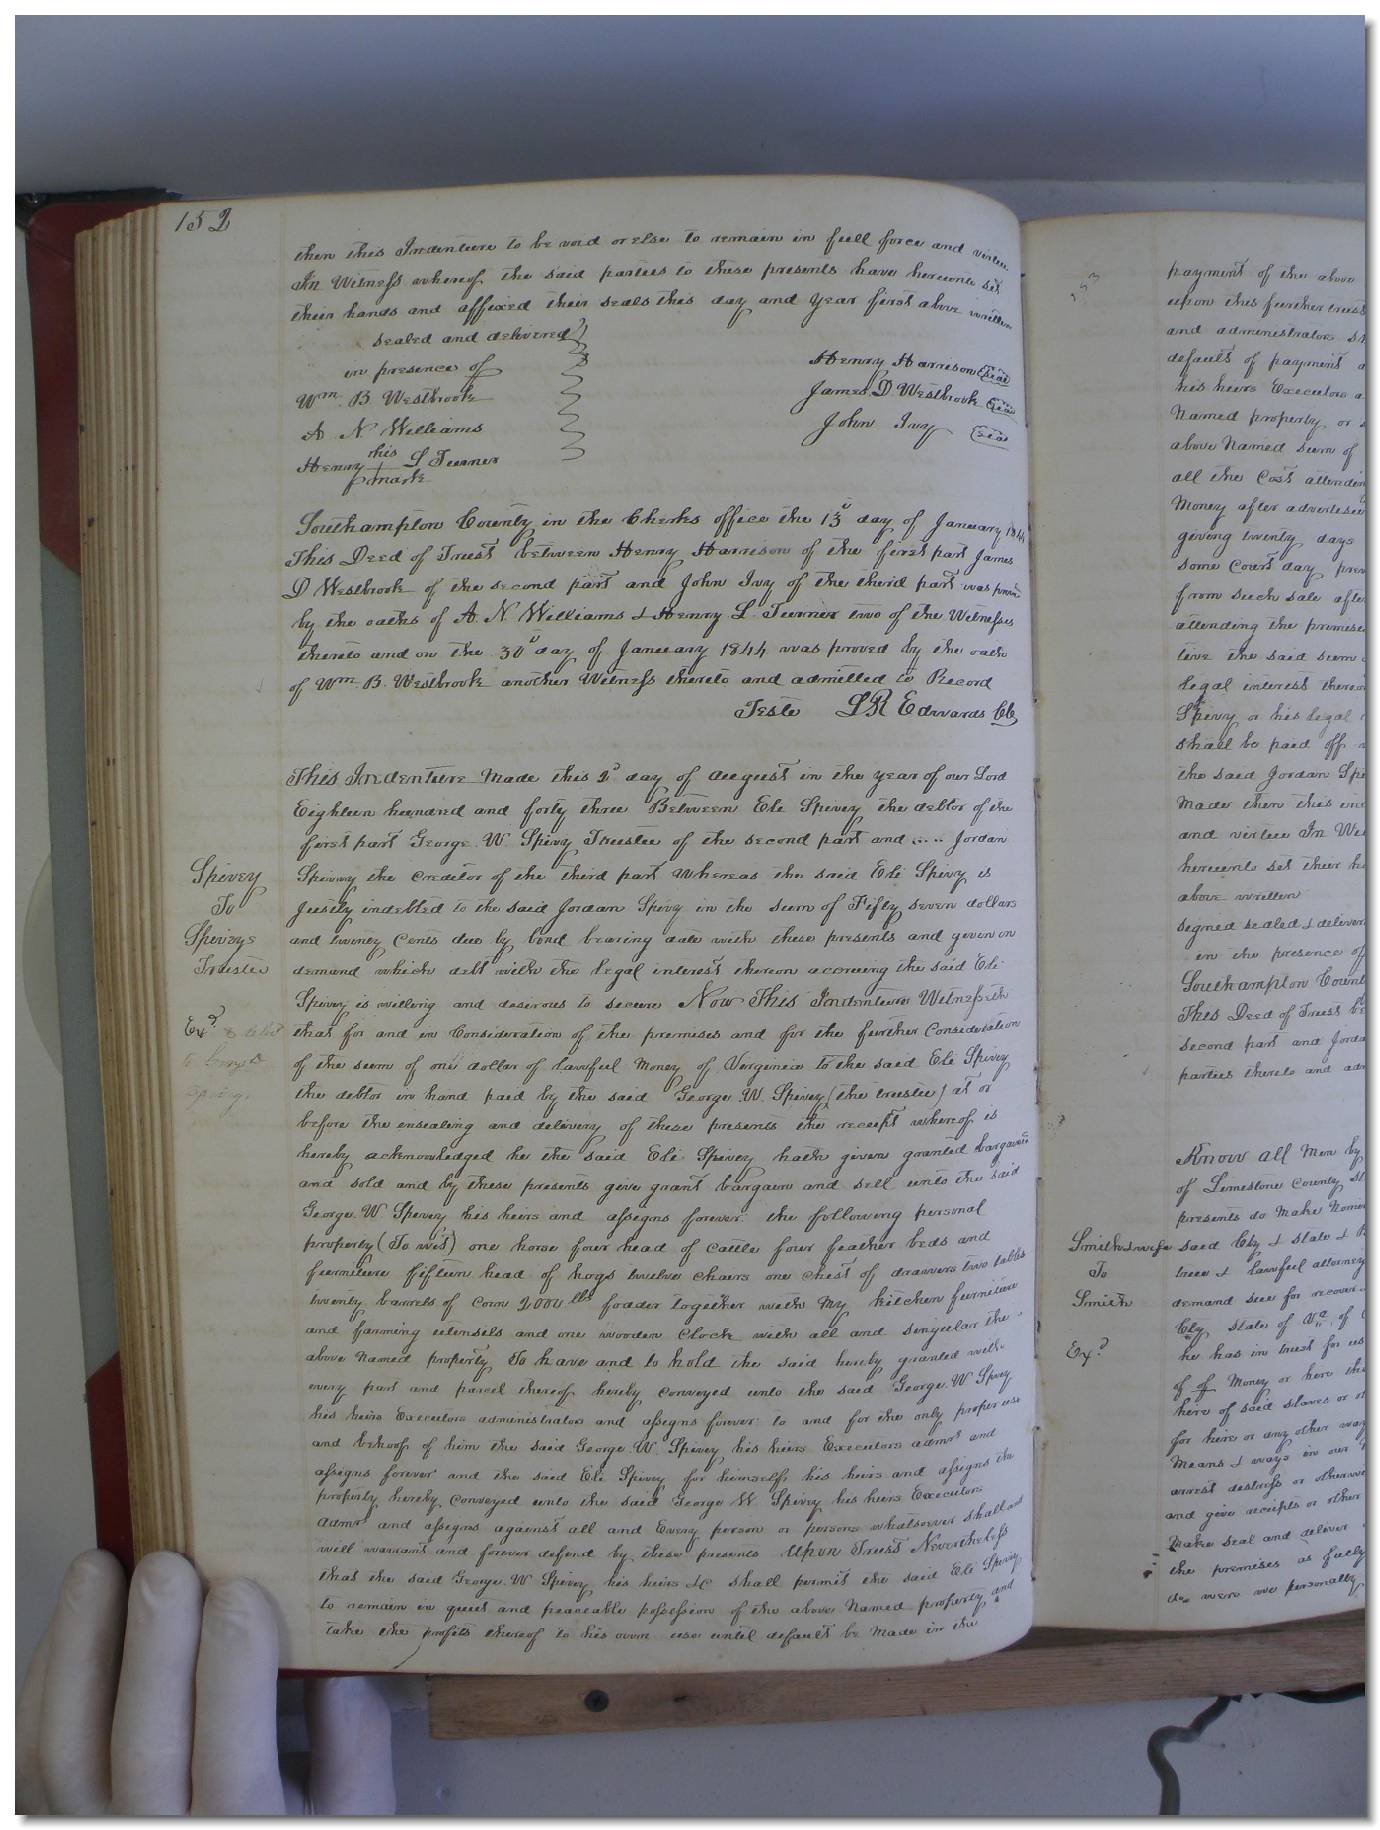 152
then this Indenture to be void or else to remain in full force and virtue
In Witness whereof the said parties to these presents have hereunto set
their hands and affixed their seals this day and year first above written
sealed and delivered
in presence of
Wm. B. Westbrook
A N Williams
his
Henry + L Turner
mark
Henry Harrison Seal
James D Westbrook Seal
John Ivy Seal
Southampton County in the Clerks office the 13th day of January 1844
This Deed of Trust between Henry Harrison of the first part James
D Westbrook of the second part and John Ivy of the third part was proven
by the oaths of A. N. Williams & Henry L. Turner two of the Witnesses
thereto and on the 30th day of January 1844 was proved by the oath
of Wm. B. Westbrook another Witness thereto and admitted to Record
Teste L R Edwards Clk
This Indenture Made this 2d day of August in the year of our Lord
Eighteen hundred and forty three Between Eli Spivey the debtor of the
first part George W. Spivy Trustee of the second part and .... Jordan
Spivey the Creditor of the third part Whereas the said Eli Spivy is
justly indebted to the said Jordan Spivy in the sum of Fifty seven dollars
and twenty Cents due by bond bearing date with these presents and given on
demand which debt with the legal interest thereon accruing the said Eli
Spivey is willing and desirous to secure Now This Indenture Witnesseth
that for and in Consideration of the premises and for the further Consideration
of the sum of one dollar of lawful Money of Virginia to the said Eli Spivey
the debtor in hand paid by the said George W. Spivey (the trustee) at or
before the ensealing and delivery of these presents the receipt whereof is
hereby acknowledged he the said Eli Spivey hath given granted bargained
and sold and by these presents give grant bargain and sell unto the said
George W Spivey his heirs and assigns forever the following personal
property (To wit) one horse four head of cattle four feather beds and
furniture fifteen head of hogs twelve chairs one chest of drawers two tables
twenty barrels of Corn 2000 lbs fodder together with My kitchen furniture
and farming utensils and one wooden Clock with all and singular the
above Named property To have and to hold the said hereby granted with
every part and parcel thereof hereby conveyed unto the said George. W Spivy
his heirs Executors administrators and assigns forever to and for the only proper use
and behoof of him the said George W. Spivey his heirs Executors admrs and
assigns forever and the said Eli Spivey for himself his heirs and assigns the
property hereby conveyed unto the said George W. Spivey his heirs Executors
Admrs and assigns against all and Every person or persons whatsoever shall and
will warrant and forever defend by these presents Upon Trust Nevertheless
that the said George. W Spivey his heirs &c shall permit the said Eli Spivey
to remain in quiet and peaceable possession of the above Named property and
take the profits thereof to his own use until default be Made in the
Spivey
To
Spiveys
Trustee
Exd
153
payment of the above
upon this further trust
and administrator
default of payment
his heirs Executors
Named property or
above Named sum of
all the Cost
Money after
giving twenty days
some Court day
from such sale
attending the
the said sum
legal interest
Spivy or his legal
shall be paid off
the said Jordan
Made then this
and virtue In
hereunto set their
above written
signed sealed &
in the presence of
Southampton
This Deed of Trust
second part and
parties thereto and
Know all Men by
of Limestone County
presents do Make
said Cty & state &
true & lawful attorney
demand sue for recover
Cty state of Va. of
he has in trust for
of of Money or here
hire of said slaves or
for hire or any other way
Means & ways in our
arrest distress or
and give receipts or other
Make seal and deliver
the premises as fully
do were we personally
Smith & wife
To
Smith
Exd